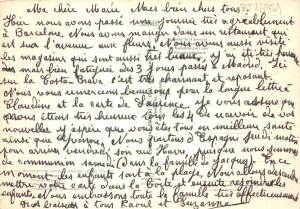 Ma chère Marie Mes bien chers tous
Hier nous avons passé une journée très agréablement
à Barcelone. Nous avons mangé dans un restaurant qui
est sur l'avenue aux fleurs. Nous avons aussi visité
les magasins qui sont aussi très beaux, j'y ai été
mais bien fatiguée des 3 jours passés à Madrid. Ici
la Costa Brava c'est très charmant et reposant.
Nous vous remercions beaucoup pour la longue lettre
Claudine et la carte de Laurence. Je vous assure que
nous étions très heureux tous les 4 de recevoir de vos
nouvelles. J'espère que vous êtes tous en meilleure santé
ainsi que Nous partons d'Espagne jeudi matin
pour arriver vendredi soir au Havre puisque nous avons
de communion samedi (dans la famille de Jacques). En ce
moment les enfants sont à la plage. Nous allons descendre
mettre votre carte dans la boîte et ensuite rejoindre les
enfants. Nous embrassons toute la famille très affectueusement
Gros baisers à tous Raoul et Suzanne